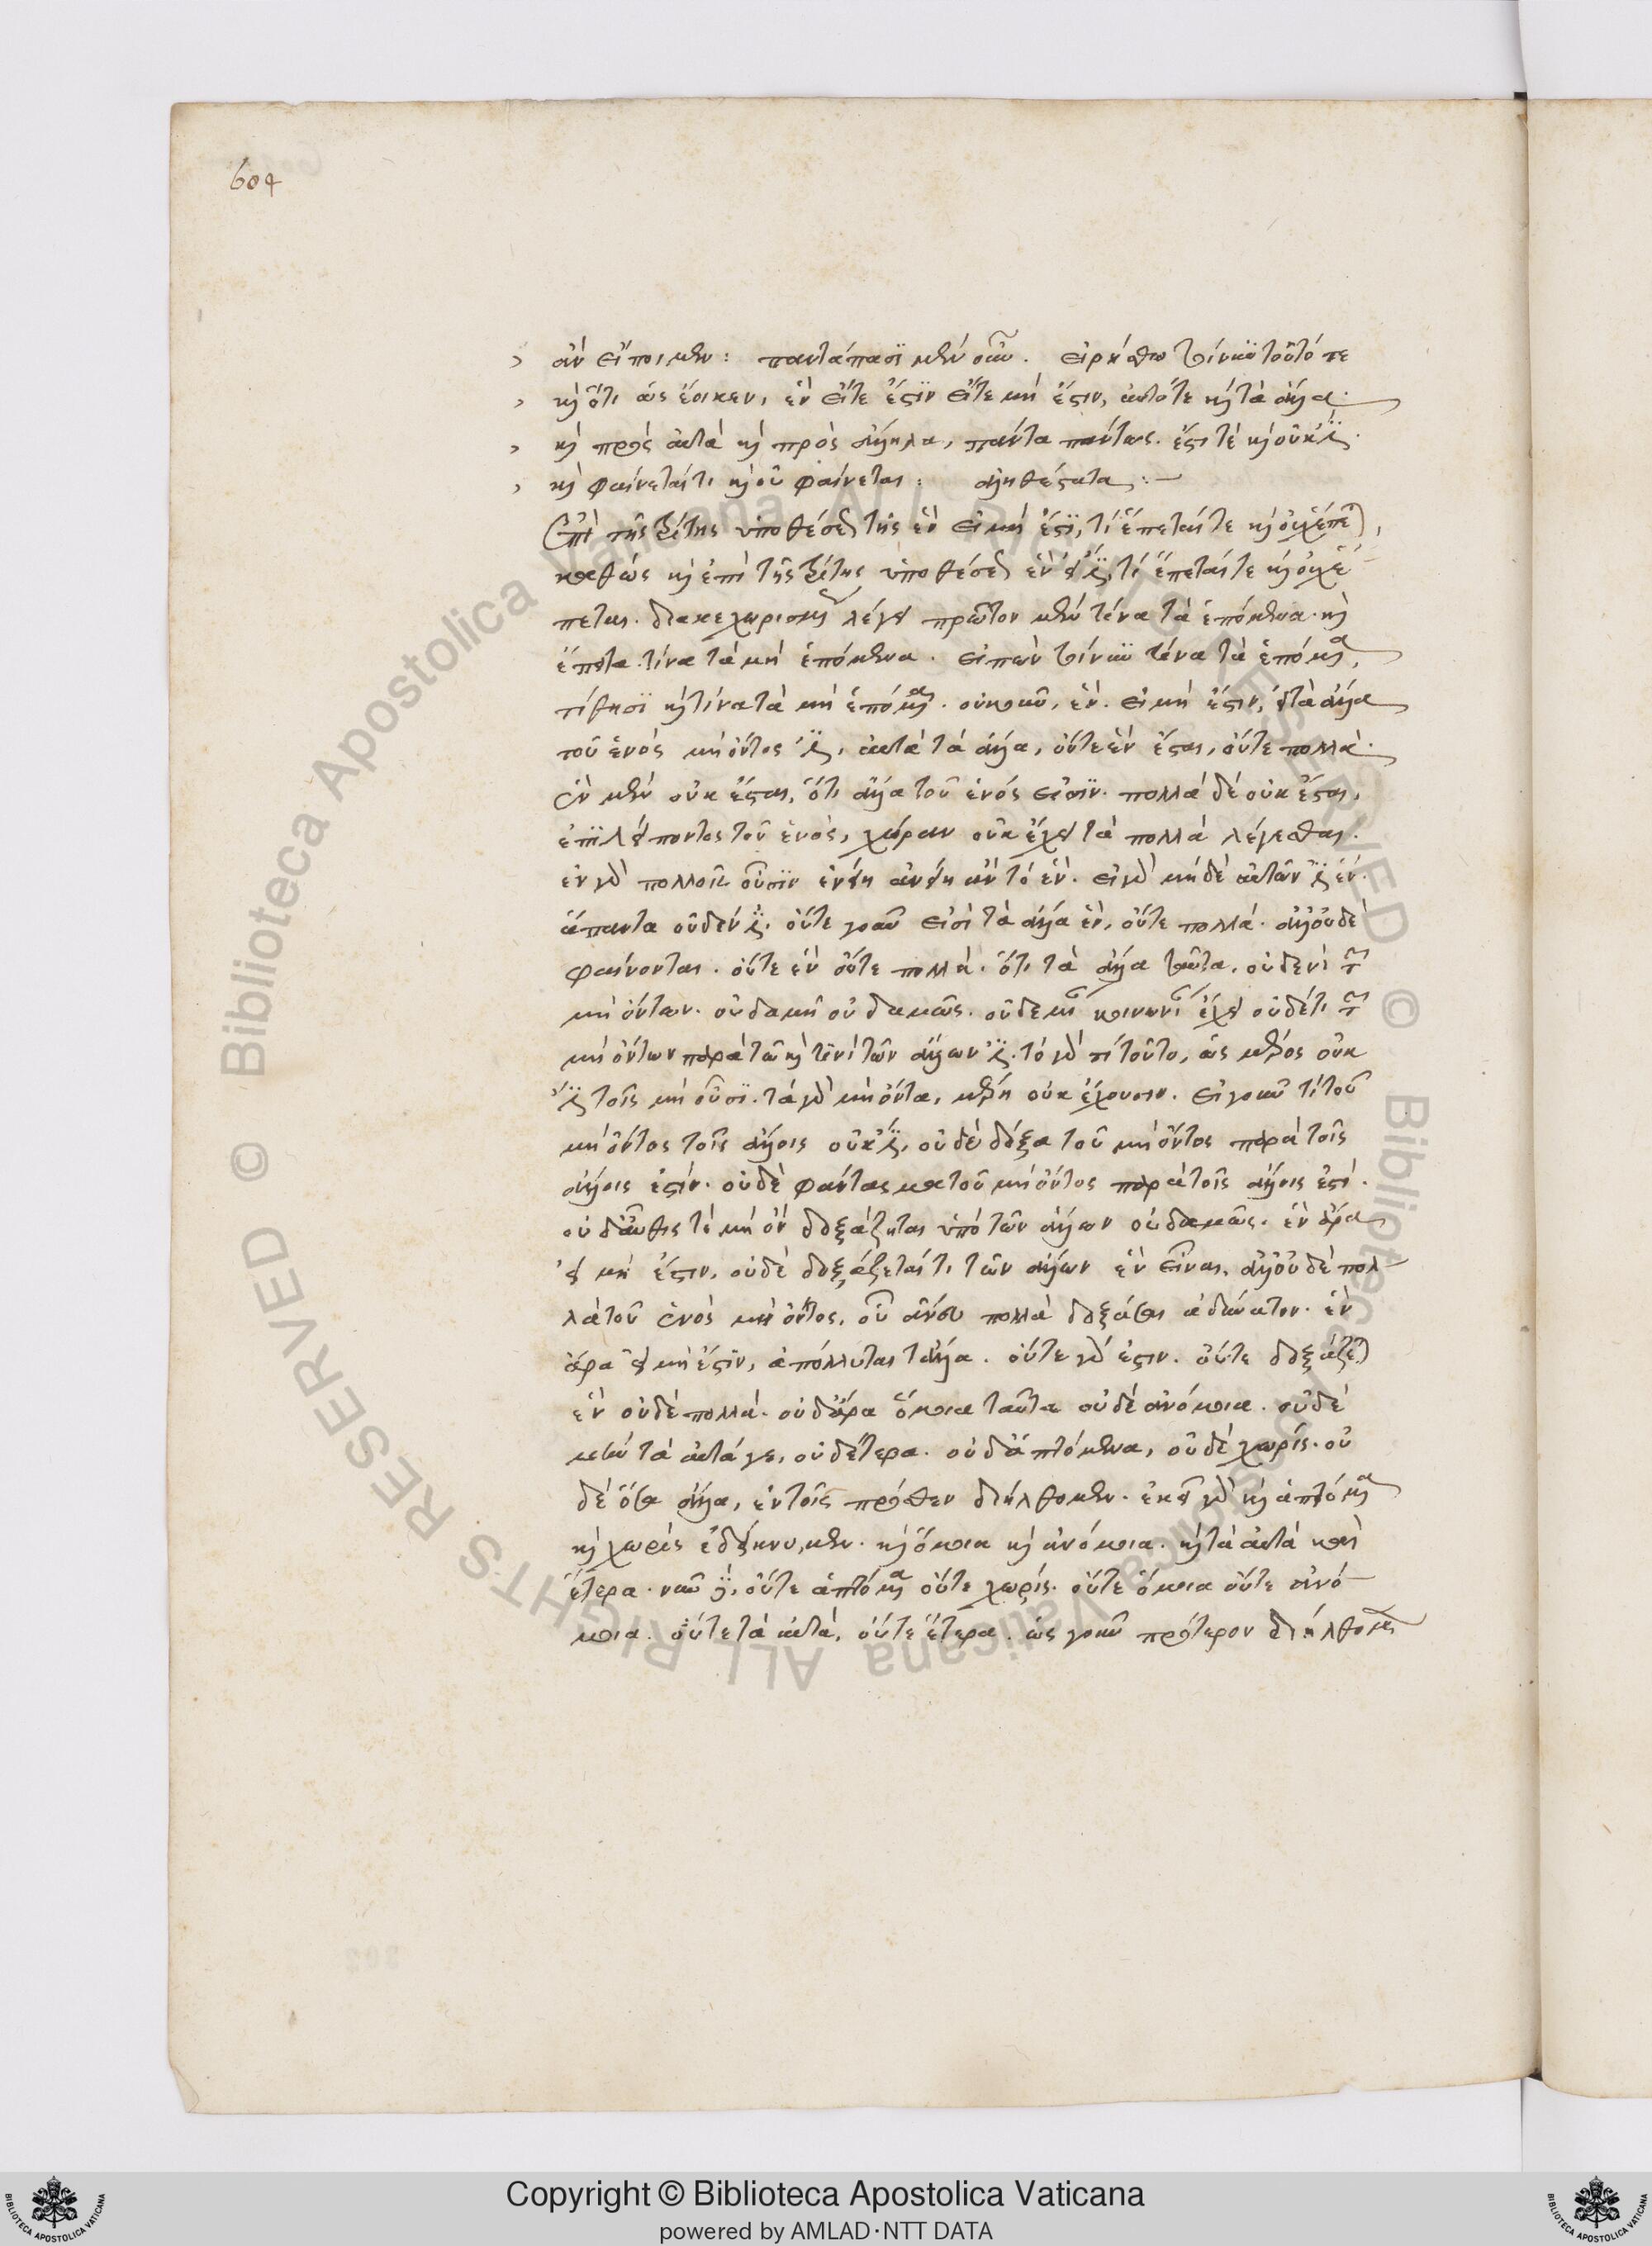 604
ἂν εἴποιμεν: παντάπασι μὲν οὖν. εἰρήσθω τοίνυν τοῦτό τε
καὶ ὅτι ὡς ἔοικεν, ἓν εἴτε ἔστιν εἴτε μή ἐστιν, αὐτό τε καὶ τὰ ἄλλα.
καὶ πρὸς αὑτὰ καὶ πρὸς ἄλληλα, πάντα πάντως. ἔστι τὲ καὶ οὐκ ἔστι.
καὶ φαίνεταί τι καὶ οὐ φαίνεται: ἀληθέστατα:
ἐπὶ τῆς τρίτης ὑποθέσεως τῆς ἓν εἰ μή ἐστι, τί ἕπεταί τε καὶ οὐχ ἕπεται,
καθὼς καὶ ἐπὶ τῆς τρίτης ὑποθέσεως ἓν εἰ ἔστι, τί ἕπεταί τε καὶ οὐχ ἕ
πεται. διακεχωρισμένως λέγει πρῶτον μὲν τίνα τὰ ἑπόμενα. καὶ
ἔπειτα τίνα τὰ μὴ ἑπόμενα. εἰπὼν τοίνυν τίνα τὰ ἑπόμενα,
τίθησι καὶ τίνα τὰ μὴ ἑπόμενα. οὐκοῦν, ἓν εἰ μή ἐστιν, τὰ ἄλλα
τοῦ ἑνὸς μὴ ὄντος ἔστι, αὐτὰ τὰ ἄλλα, οὔτε ἓν ἔσται, οὔτε πολλά.
ἓν μὲν οὐκ ἔσται, ὅτι ἄλλα τοῦ ἑνός εἰσιν. πολλὰ δὲ οὐκ ἔσται,
ἐπιλείποντος τοῦ ἑνὸς, χώραν οὐκ ἔχει τὰ πολλὰ λέγεσθαι.
ἐν γὰρ πολλοῖς οὖσιν ἐνείη ἂν τὸ ἕν. εἰ γὰρ μηδὲν αὐτῶν ἐστιν ἕν.
ἅπαντα οὐδέν ἐστι. οὔτε γοῦν εἰσὶ τὰ ἄλλα ἓν, οὔτε πολλά. ἀλλ' οὐδὲ
φαίνονται. οὔτε ἓν οὔτε πολλά. ὅτι τὰ ἄλλα ταῦτα, οὐδενὶ τῶν
μὴ ὄντων. οὐδαμῆ οὐδαμῶς. οὐδεμίαν κοινωνίαν ἔχει οὐδέ τι τῶν
μὴ ὄντων παρὰ τῶ καὶ τινὶ τῶν ἄλλων ἐστί. τὸ γὰρ τὶ τοῦτο, ὡς μέρος οὐκ
ἔστι τοῖς μὴ οὖσι. τὰ γὰρ μὴ ὄντα, μέρη οὐκ ἔχουσιν. εἰ γοῦν τὶ τοῦ
μὴ ὄντος τοῖς ἄλλοις οὐκ ἔστι, οὐδὲ δόξα τοῦ μὴ ὄντος παρὰ τοῖς
ἄλλοις ἐστίν. οὐδὲ φάντασμα τοῦ μὴ ὄντος παρὰ τοῖς ἄλλοις ἐστί.
οὐδ' αὖθις τὸ μὴ ὂν δοξάζηται ὑπὸ τῶν ἄλλων οὐδαμῶς. ἓν ἄρα
εἰ μή ἐστιν, οὐδὲ δοξάζεταί τι τῶν ἄλλων ἓν εἶναι, ἀλλ' οὐδὲ πολ
λὰ τοῦ ἑνὸς μὴ ὄντος, οὗ ἄνευ πολλὰ δοξάσαι ἀδύνατον. ἓν
ἄρα εἰ μή ἐστιν, ἀπόλλυται τἄλλα. οὔτε γὰρ ἐστιν. οὔτε δοξάζεται
ἓν οὐδὲ πολλά. οὐδ' ἄρα ὅμοια ταῦτα οὐδὲ ἀνόμοια. οὐδὲ
μὲν τὰ αὐτά γε, οὐδ' ἕτερα. οὐδ' ἁπτόμενα, οὐδὲ χωρίς. οὐ
δὲ ὅσα ἄλλα, ἐν τοῖς πρόσθεν διήλθομεν. ἐκεῖ γὰρ καὶ ἁπτόμενα
καὶ χωρὶς ἐδείκνυμεν. καὶ ὅμοια καὶ ἀνόμοια. καὶ τὰ αὐτὰ καὶ
ἕτερα. οὔτε ἁπτόμενα οὔτε χωρίς. οὔτε ὅμοια οὔτε ἀνό
μοια. οὔτε τὰ αὐτά, οὔτε ἕτερα. ὡς γοῦν πρότερον διήλθομεν
© Biblioteca Apostolica Vaticana ALL RIGHTS RESERVED
Copyright © Biblioteca Apostolica Vaticana
powered by AMLAD·NTT DATA